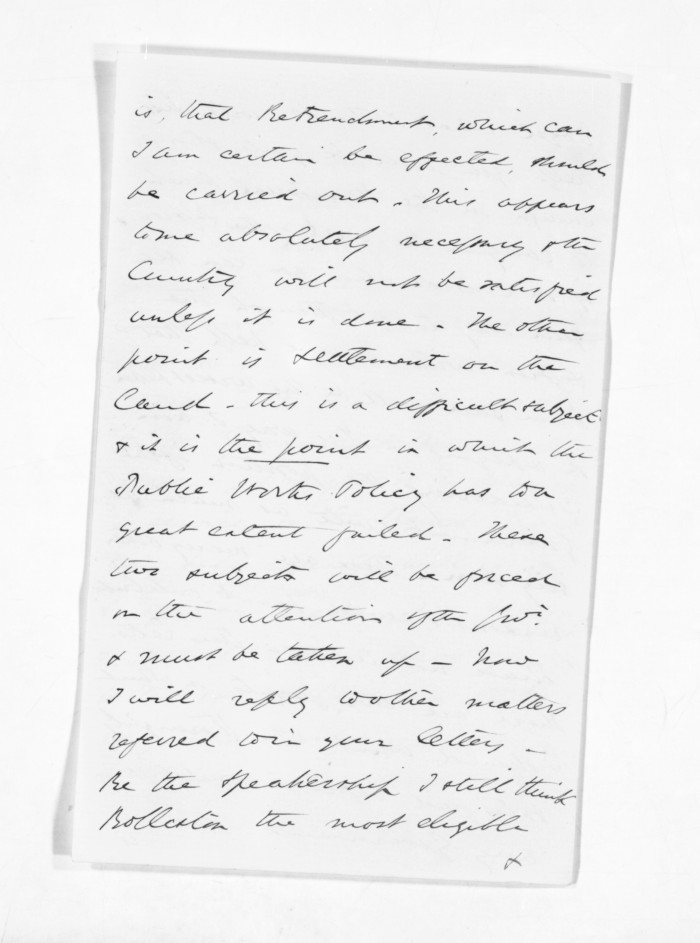 is, that Retrenchment, which can
I am certain be effected, should
be carried out. This appears
to me absolutely necessary & the
Country will not be satisfied
unless it is done. The other
point is settlement on the
Land - this is a difficult subject
& it is the point in which the
Public Works Policy has to a
great extent failed. These
two subjects will be forced
on the attention of the Govt.
& must be taken up - Now
I will reply to other matters
referred to in your letters -
Re the Speakership I still think
Rolleston the most eligible
&